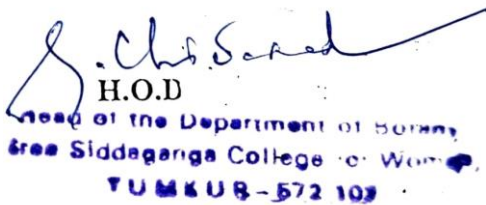 H.O.D
Head of the Department of Botany
Sree Siddaganga College of Women,
TUMKUR-572 102